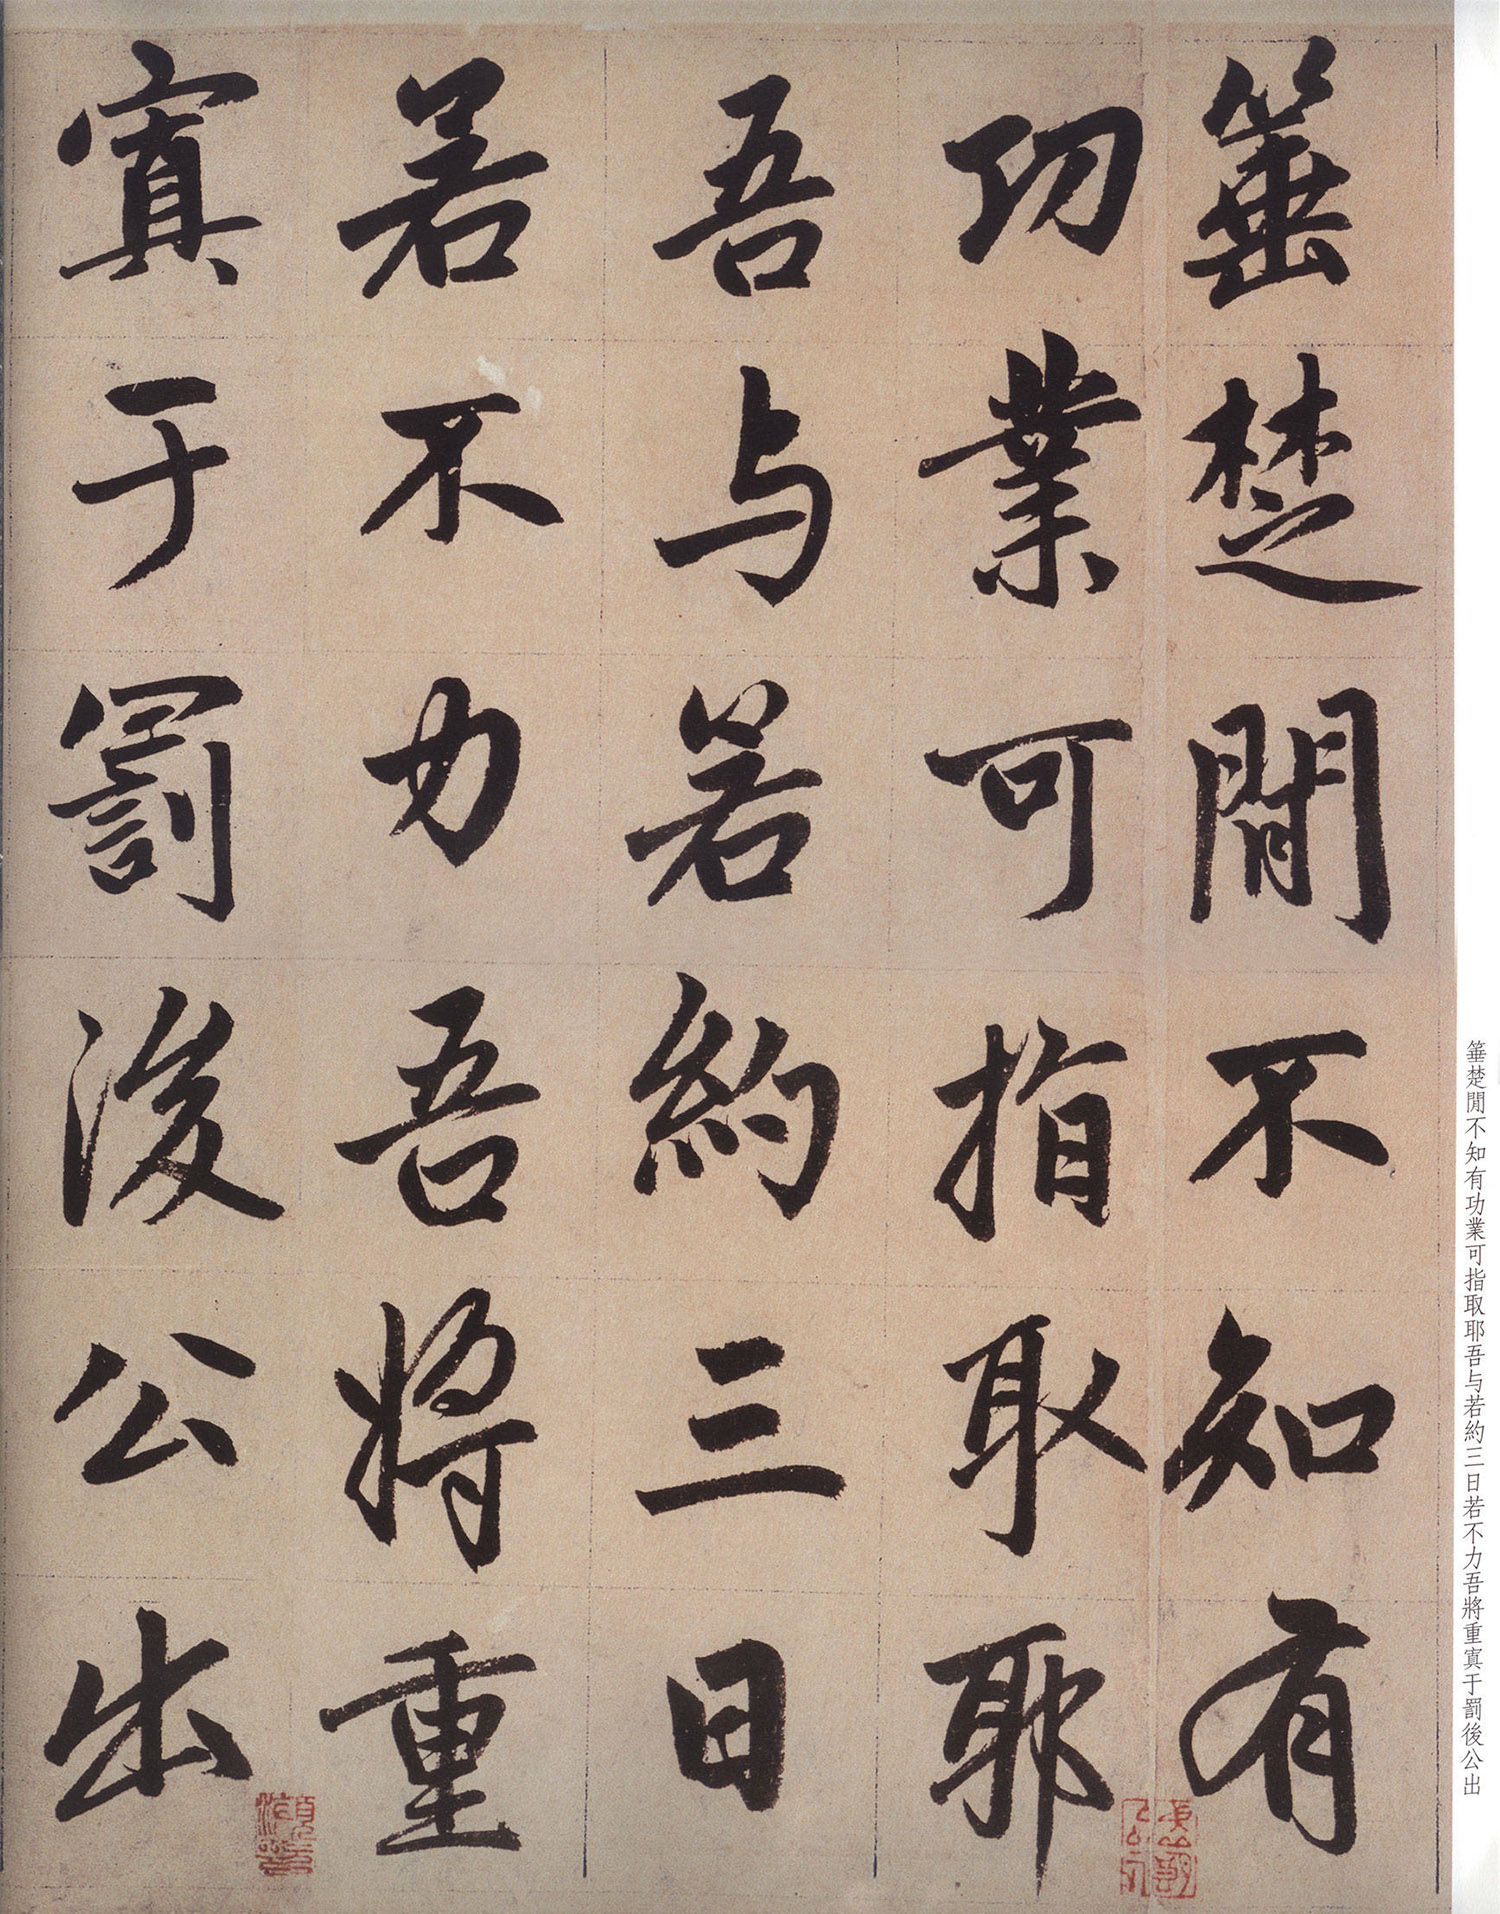 箠楚閒不知有
功業可指取耶
吾与若約三日
若不力吾將重
寘于罰後公出
箠楚閒不知有功業可指取耶吾与若約三日若不力吾將重寘于罰後公出